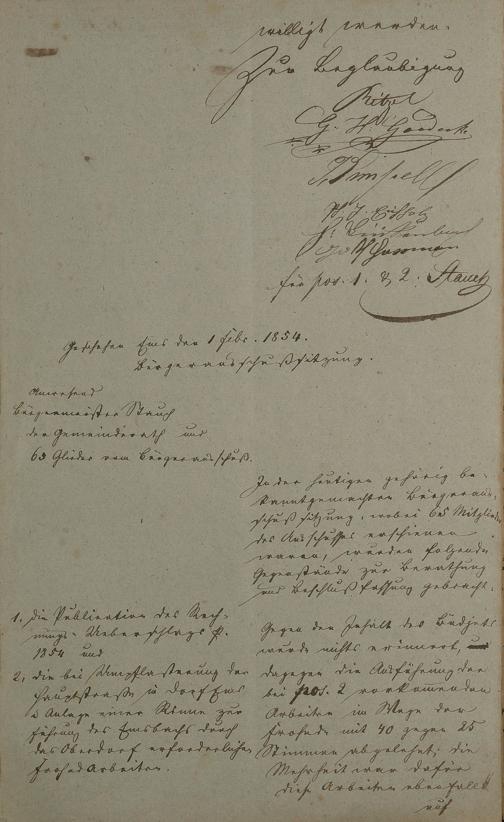 willigt werden.
Zur Beglaubigung
Ritzel
G. H.
für pos. 1. & 2. Stauch
Geschehen Ems den 1 Febr. 1854.
Bürgerausschußsitzung.
Anwesend
Bürgermeister Stauch
der Gemeinderath und
65 Glieder vom Bürgerausschuß.
In der heutigen gehörig be-
kanntgemachten Bürgeraus-
schußsitzung, wobei 65 Mitglieder
des Ausschusses erschienen
waren, wurden folgende
Gegenstände zur Berathung
und Beschlußfassung gebracht.
1. die Publication des Rech-
nungs-Ueberschlags p.
1854 und
2, die bei Umpflasterung der
Hauptstraße in Dorf Ems
& Anlage einer Rinne zur
führung des Emsbachs durch
das Oberdorf erforderlichen
Frohndarbeiten.
Gegen den Inhalt des Büdjets
wurde nichts erinnert,
dagegen die Ausführung der
bei pos. 2 vorkommenden
Arbeiten im Wege der
Frohnde mit 40 gegen 25
Stimmen abgelehnt; die
Mehrheit war dafür
diese Arbeiten ebenfalls
auf